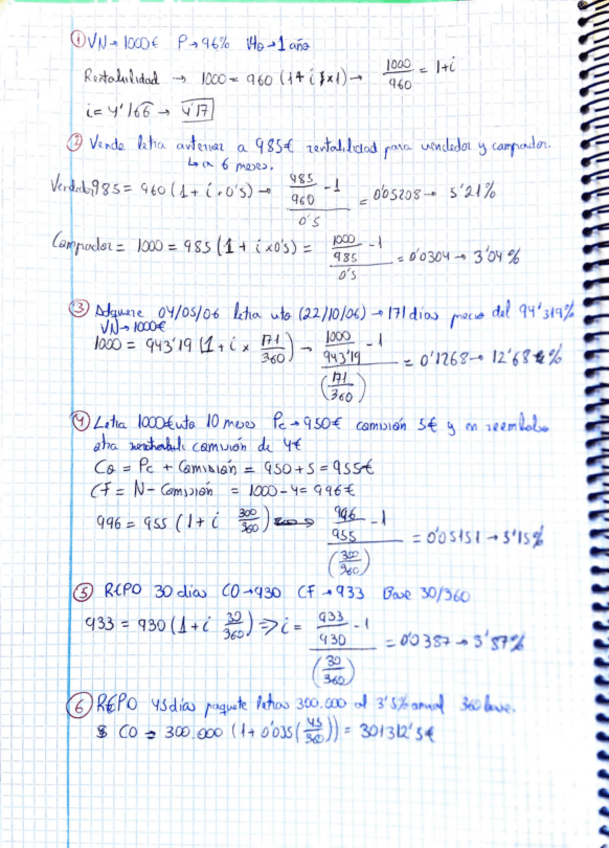 ① VN→ 1000€ P→96% Vto→1 año
Rentabilidad → 1000 = 960 (1+ i x1) → 1000/960 = 1+i
i= 4'166 → 4'17
② Vende letra anterior a 985€ rentabilidad para vendedor y comprador.
↳ a 6 meses.
985 = 960 (1 + i · 0'5) → (985/960 - 1)/0'5 = 0'05208 → 5'21%
Comprador = 1000 = 985 (1 + i x 0'5) = (1000/985 - 1)/0'5 = 0'0304 → 3'04 %
③ Adquiere 04/05/06 letra vto (22/10/06) → 171 días precio del 94'319%
VN→1000€
1000 = 943'19 (1 + i x 171/360) → (1000/943'19 - 1)/(171/360) = 0'1268 → 12'68 %
④ Letra 1000€ vto 10 meses Pc → 950€ comisión 5€ y en reembolso
otra comisión de 4€
Co = Pc + Comisión = 950 + 5 = 955€
CF = N - Comisión = 1000 - 4 = 996€
996 = 955 (1 + i 300/360) → (996/955 - 1)/(300/360) = 0'05151 → 5'15%
⑤ REPO 30 días CO→930 CF→933 Base 30/360
933 = 930 (1 + i 30/360) ⇒ i = (933/930 - 1)/(30/360) = 0'0387 → 3'87%
⑥ REPO 45 días paquete letras 300.000 al 3'5% anual 360 base.
CO = 300.000 (1 + 0'035 (45/360)) = 301312'5€